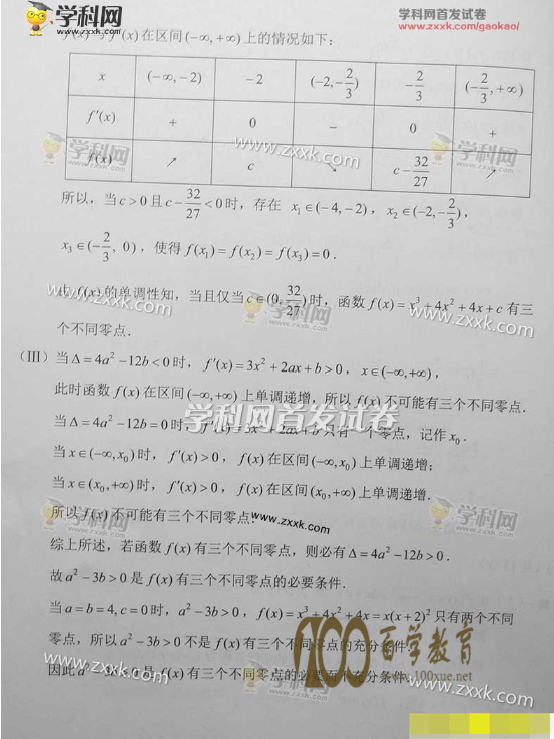 学科网
www.zxxk.com
学科网首发试卷
www.zxxk.com/gaokao/
f(x)与f′(x)在区间(−∞,+∞)上的情况如下：
x (−∞,−2) −2 (−2,−2/3) −2/3 (−2/3,+∞)
f′(x) + 0 − 0 +
f(x) ↗ c ↘ c−32/27 ↗
学科网
www.zxxk.com
学科网
所以，当c>0且c−32/27<0时，存在 x₁∈(−4,−2)，x₂∈(−2,−2/3)，
x₃∈(−2/3, 0)，使得f(x₁)=f(x₂)=f(x₃)=0．
由f(x)的单调性知，当且仅当c∈(0,32/27)时，函数f(x)=x³+4x²+4x+c有三
www.zxxk.com
学科网
www.zxxk.com
个不同零点．
(Ⅲ) 当Δ=4a²−12b<0时，f′(x)=3x²+2ax+b>0，x∈(−∞,+∞)，
此时函数f(x)在区间(−∞,+∞)上单调递增，所以f(x)不可能有三个不同零点．
学科网首发试卷
当Δ=4a²−12b=0时，f′(x)=3x²+2ax+b只有一个零点，记作x₀．
当x∈(−∞,x₀)时，f′(x)>0，f(x)在区间(−∞,x₀)上单调递增；
当x∈(x₀,+∞)时，f′(x)>0，f(x)在区间(x₀,+∞)上单调递增．
所以f(x)不可能有三个不同零点．
学科网
www.zxxk.com
学科网
综上所述，若函数f(x)有三个不同零点，则必有Δ=4a²−12b>0．
故a²−3b>0是f(x)有三个不同零点的必要条件．
当a=b=4, c=0时，a²−3b>0，f(x)=x³+4x²+4x=x(x+2)²只有两个不同
零点，所以a²−3b>0不是f(x)有三个不同零点的充分条件．
因此a²−3b>0是f(x)有三个不同零点的必要而不充分条件．
www.zxxk.com
100百学教育
www.100xue.net
www.zxxk.com